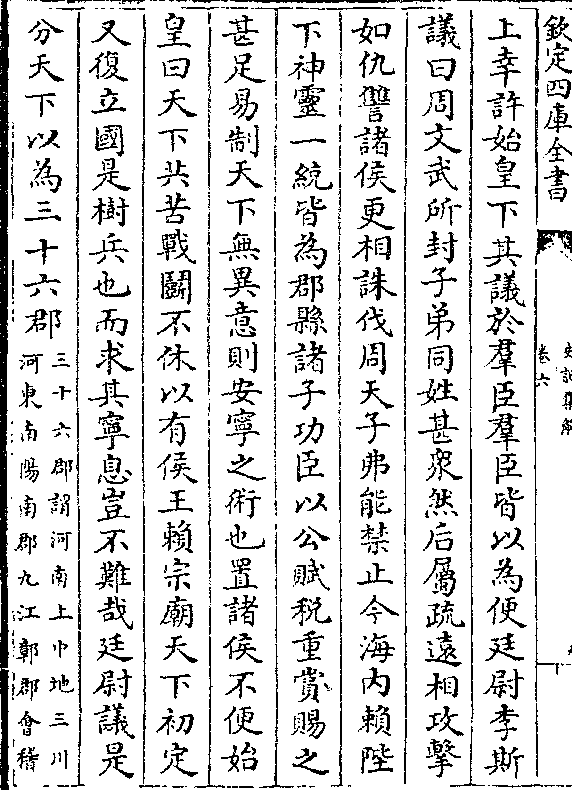 欽定四庫全書
史記集解
卷六
上幸許始皇下其議於羣臣羣臣皆以為便廷尉李斯
議曰周文武所封子弟同姓甚衆然后屬疏逺相攻擊
如仇讐諸侯更相誅伐周天子弗能禁止今海内賴陛
下神靈一統皆為郡縣諸子功臣以公賦税重賞賜之
甚足易制天下無異意則安寧之術也置諸侯不便始
皇曰天下共苦戰鬬不休以有侯王賴宗廟天下初定
又復立國是樹兵也而求其寧息豈不難哉廷尉議是
分天下以為三十六郡
三十六郡謂河南上巾地三川
河東南陽南郡九江鄣郡㑹稽